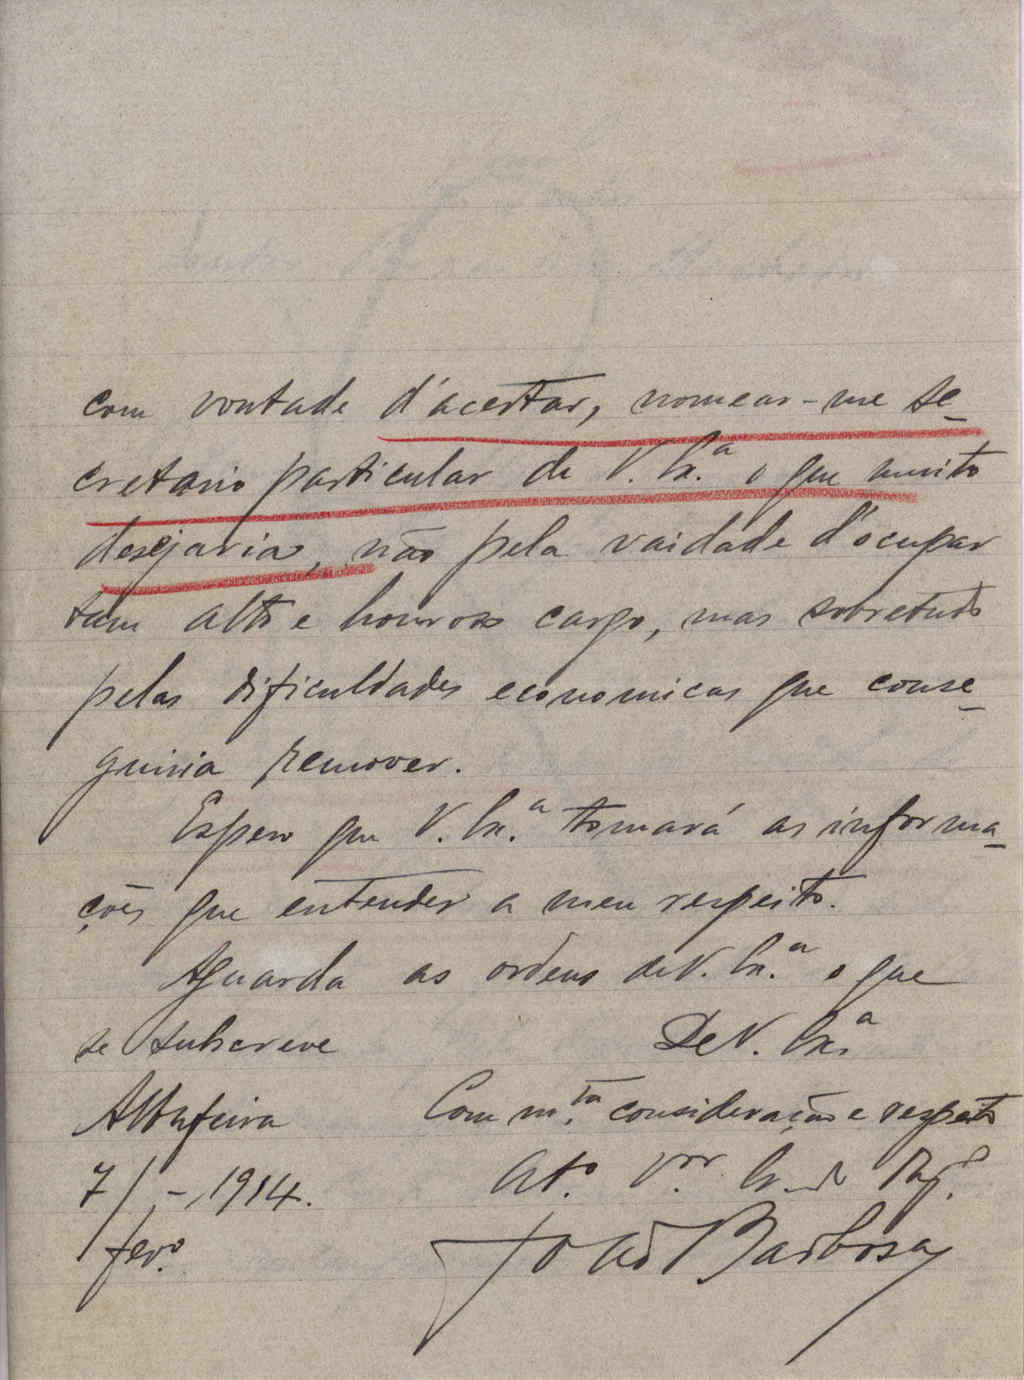 com vontade d'acertar, nomear-me se-
cretario particular de V. Ex.ª o que muito
desejaria, não pela vaidade d'ocupar
tam alto e honroso cargo, mas sobretudo
pelas dificuldades economicas que conse-
guiria remover.
Espero que V. Ex.ª tomará as informa-
ções que entender a meu respeito.
Aguarda as ordens de V. Ex.ª o que
se subscreve
De V. Ex.ª
Albufeira
Com m.ta consideração e respeito
7/-1914.
At.º V.or
fev.º
João Barbosa